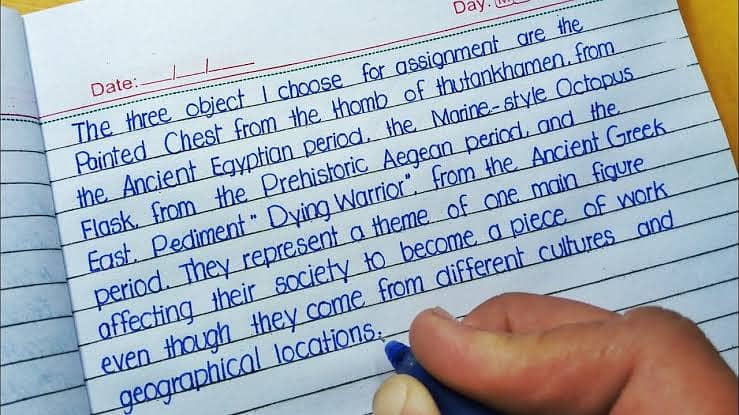 Day:
Date:
The three object I choose for assignment are the
Painted Chest from the thomb of thutankhamen, from
the Ancient Egyptian period, the Marine-style Octopus
Flask, from the Prehistoric Aegean period, and the
East. Pediment "Dying Warrior", from the Ancient Greek
period. They represent a theme of one main figure
affecting their society to become a piece of work
even though they come from different cultures and
geographical locations.